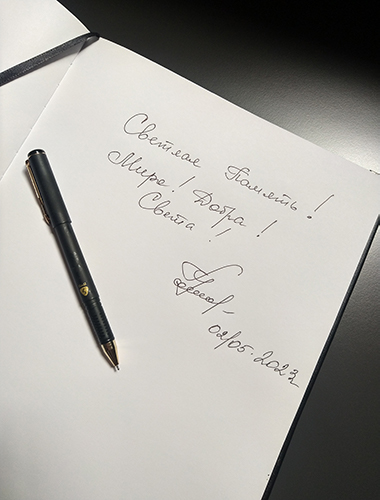 Светлая Память!
Мира! Добра!
Света!
02/05.2023